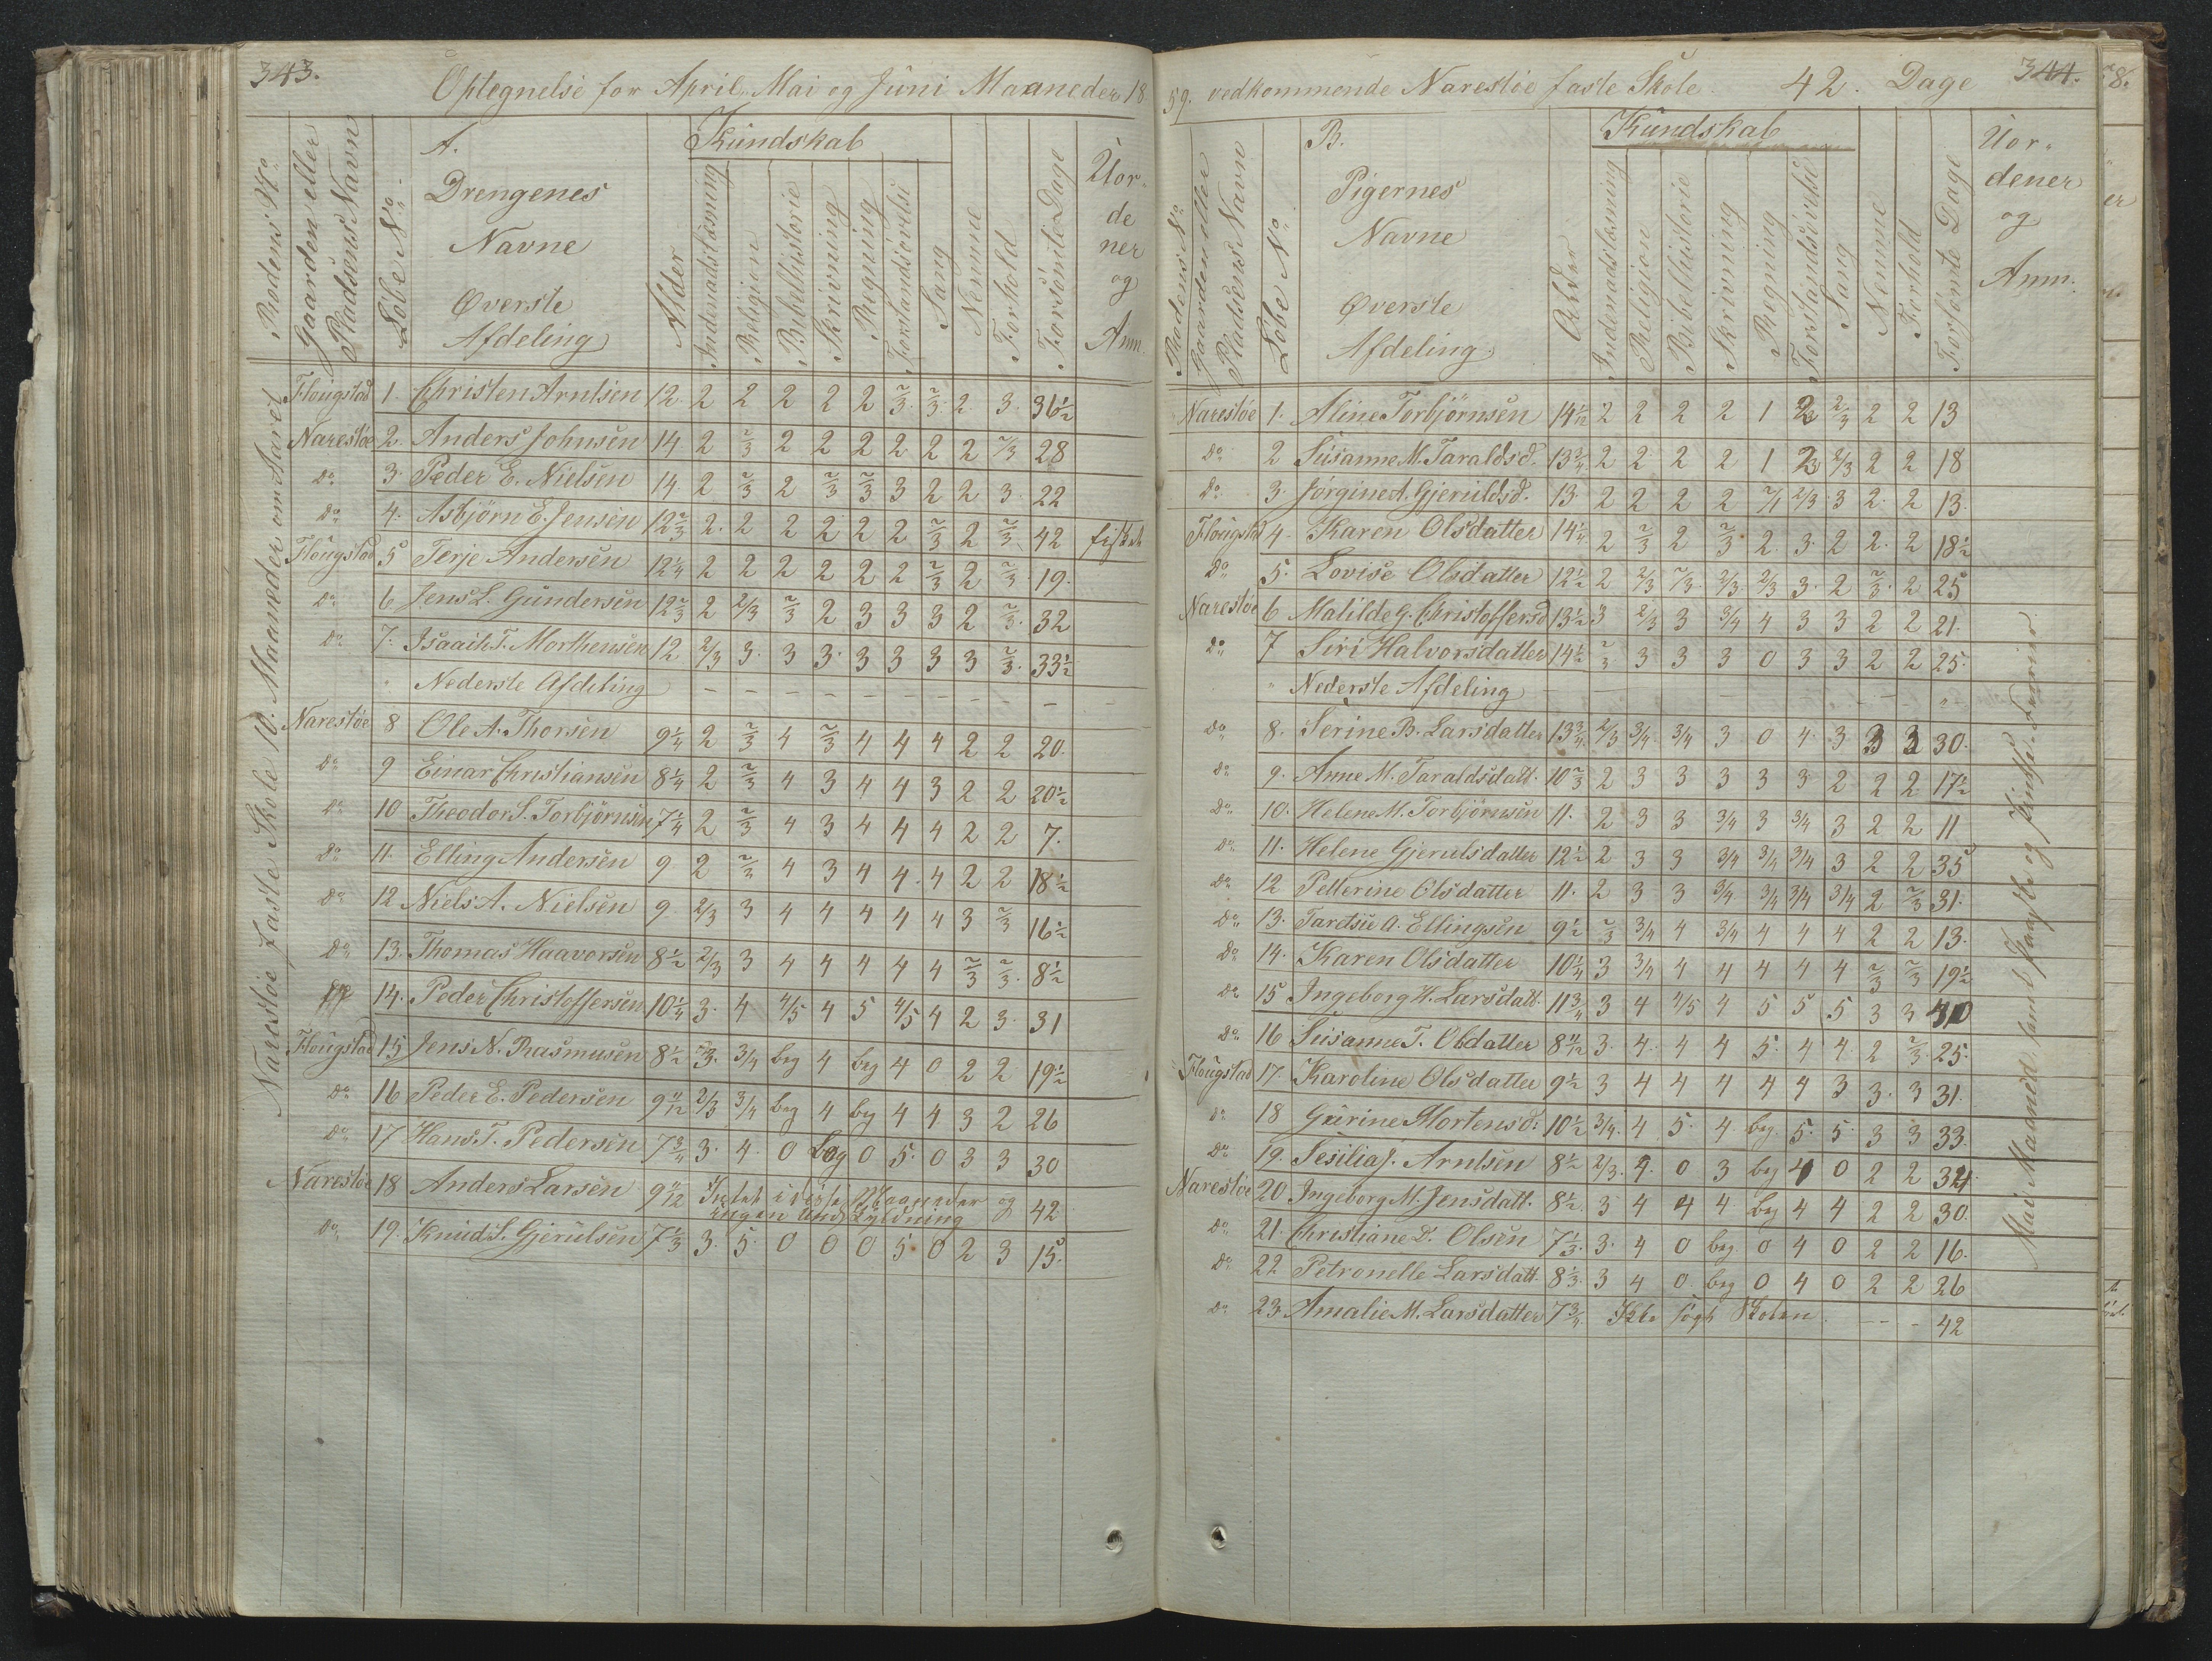 343.
Optegnelse for April, Mai og Juni Maaneder 18
Rodens No
Gaarden eller Pladsens Navn
Løbe No
A.
Drengenes
Navne
Øverste
Afdeling
Alder
Kundskab
Indenadslæsning
Religion
Bibelhistorie
Skrivning
Regning
Forstandsøvelse
Sang
Nemme
Forhold
Forsømte Dage
Uor-
de
ner
og
Anm.
Narestøe faste Skole 10. Maaneder om Aaret
Flougstad 1. Christen Arntsen 12 2 2 2 2 2 2/3 2/3 2 3 36 1/2
Narestøe 2. Anders Johnsen 14 2 2/3 2 2 2 2 2 2 2/3 28
do 3. Peder E. Nielsen 14 2 2/3 2 2/3 2/3 3 2 2 3 22
do 4. Asbjørn E. Jensen 12 2/3 2 2 2 2 2 2 2/3 2 2/3 42
Flougstad 5 Terje Andersen 12 1/4 2 2 2 2 2 2 2/3 2 2/3 19.
do 6 Jens L. Gundersen 12 2/3 2 2/3 2/3 2 3 3 3 2 2/3 32
do 7. Isaach T. Morthensen 12 2/3 3 3 3 3 3 3 3 2/3 33 1/2
Nederste Afdeling - - - - - - - - - -
Narestøe 8 Ole A. Thorsen 9 1/4 2 2/3 4 2/3 4 4 4 2 2 20.
do 9 Einar Christiansen 8 1/4 2 2/3 4 3 4 4 3 2 2 20 1/2
do 10 Theodor S. Torbjørnsen 7 1/4 2 2/3 4 3 4 4 4 2 2 7.
do 11. Elling Andersen 9 2 2/3 4 3 4 4 4 2 2 18 1/2
do 12 Niels A. Nielsen 9 2/3 3 4 4 4 4 4 3 2/3 16 1/2
do 13. Thomas Haavorsen 8 1/2 2/3 3 4 4 4 4 4 2/3 2/3 8 1/2
14. Peder Christoffersen 10 1/4 3. 4 4/5 4 5 4/5 4 2 3. 31
Flougstad 15 Jens N. Rasmusen 8 1/2 2/3. 3/4 beg 4 beg 4 0 2 2 19 1/2
do 16 Peder E. Pedersen 9 11/12 2/3 3/4 beg 4 beg 4 4 3 2 26
do 17 Hans T. Pedersen 7 3/4 3. 4. 0 beg 0 5. 0 3 3 30
Narestøe 18 Anders Larsen 9 11/12 Intet i disse Maaneder og 42
ingen Undskyldning
do 19. Knud S. Gjerulsen 7 1/3 3. 5. 0 0 0 5 0 2 3 15.
59. vedkommende Narestøe faste Skole 42. Dage
344.
Rodens No
Gaarden eller Pladsens Navn
Løbe No
B.
Pigernes
Navne
Øverste
Afdeling
Alder
Kundskab
Indenadslæsning
Religion
Bibelhistorie
Skrivning
Regning
Forstandsøvelse
Sang
Nemme
Forhold
Forsømte Dage
Uor-
dener
og
Anm.
Narestøe 1. Aline Torbjørnsen 14 1/12 2 2 2 2 1 2 2/3 2 2 13
do 2 Susanne M. Taraldsd. 13 3/4 2 2 2 2 1 2 2/3 2 2 18
do 3. Jørgine A. Gjeruldsd. 13 2 2 2 2 2/1 2/3 3 2 2 13.
Flougstad 4. Karen Olsdatter 14 1/4 2 2/3 2 2/3 2 3. 2 2 2 18 1/2
do 5. Lovise Olsdatter 12 1/2 2 2/3 2/3 2/3 2/3 3. 2 2/3 2 25
Narestøe 6 Matilde G. Christoffersd 13 1/2 3 2/3 3 3/4 4 3 3 2 2 21.
do 7 Siri Halvorsdatter 14 1/2 2/3 3 3 3 0 3 3 2 2 25.
Nederste Afdeling
do 8. Serine B. Larsdatter 13 3/4 2/3 3/4 3/4 3 0 4 3 3 3 30.
do 9. Anne M. Taraldsdatt. 10 2/3 2 3 3 3 3 3 2 2 2 17 1/2
do 10. Helene M. Torbjørnsen 11. 2 3 3 3/4 3 3/4 3 2 2 11
do 11. Helene Gjerulsdatter 12 1/2 2 3 3 3/4 3/4 3/4 3 2 2 35
do 12 Petterine Olsdatter 11. 2 3 3 3/4 3/4 3/4 3/4 2 2/3 31.
do 13. A. Ellingsen 9 1/2 2/3 3/4 4 3/4 4 4 4 2 2 13.
do 14. Karen Olsdatter 10 1/4 3 3/4 4 4 4 4 4 2/3 2/3 19 1/2
do 15 Ingeborg H. Larsdatt. 11 3/4 3 4 4/5 4 5 5 5 3 3 40
do 16 Susanne T. Olsdatter 8 11/12 3. 4. 4 4 5. 4 4. 2 2/3 25.
Flougstad 17. Karoline Olsdatter 9 1/2 3 4 4 4 4 4 3 3. 3 31.
do 18 Gurine Mortensd: 10 1/2 3/4. 4 5. 4 beg. 5. 5. 3 3 33
do 19. Sesilia J. Arntsen 8 1/2 2/3. 4. 0 3 beg 4 0 2 2 34
Narestøe 20 Ingeborg M. Jensdatt. 8 1/2. 3 4 4 4 beg 4 4 2 2 30.
do 21. Christiane D. Olsen 7 1/3. 3. 4 0 beg 0 4 0 2 2 16.
do 22 Petronelle Larsdatt. 8 1/3. 3 4 0 beg 0 4 0 2 2 26
do 23. Amalie M. Larsdatter 7 3/4. Ikke søgt Skolen. - - - 42
Mai Maaned samt Faaste og Pintse Ferier